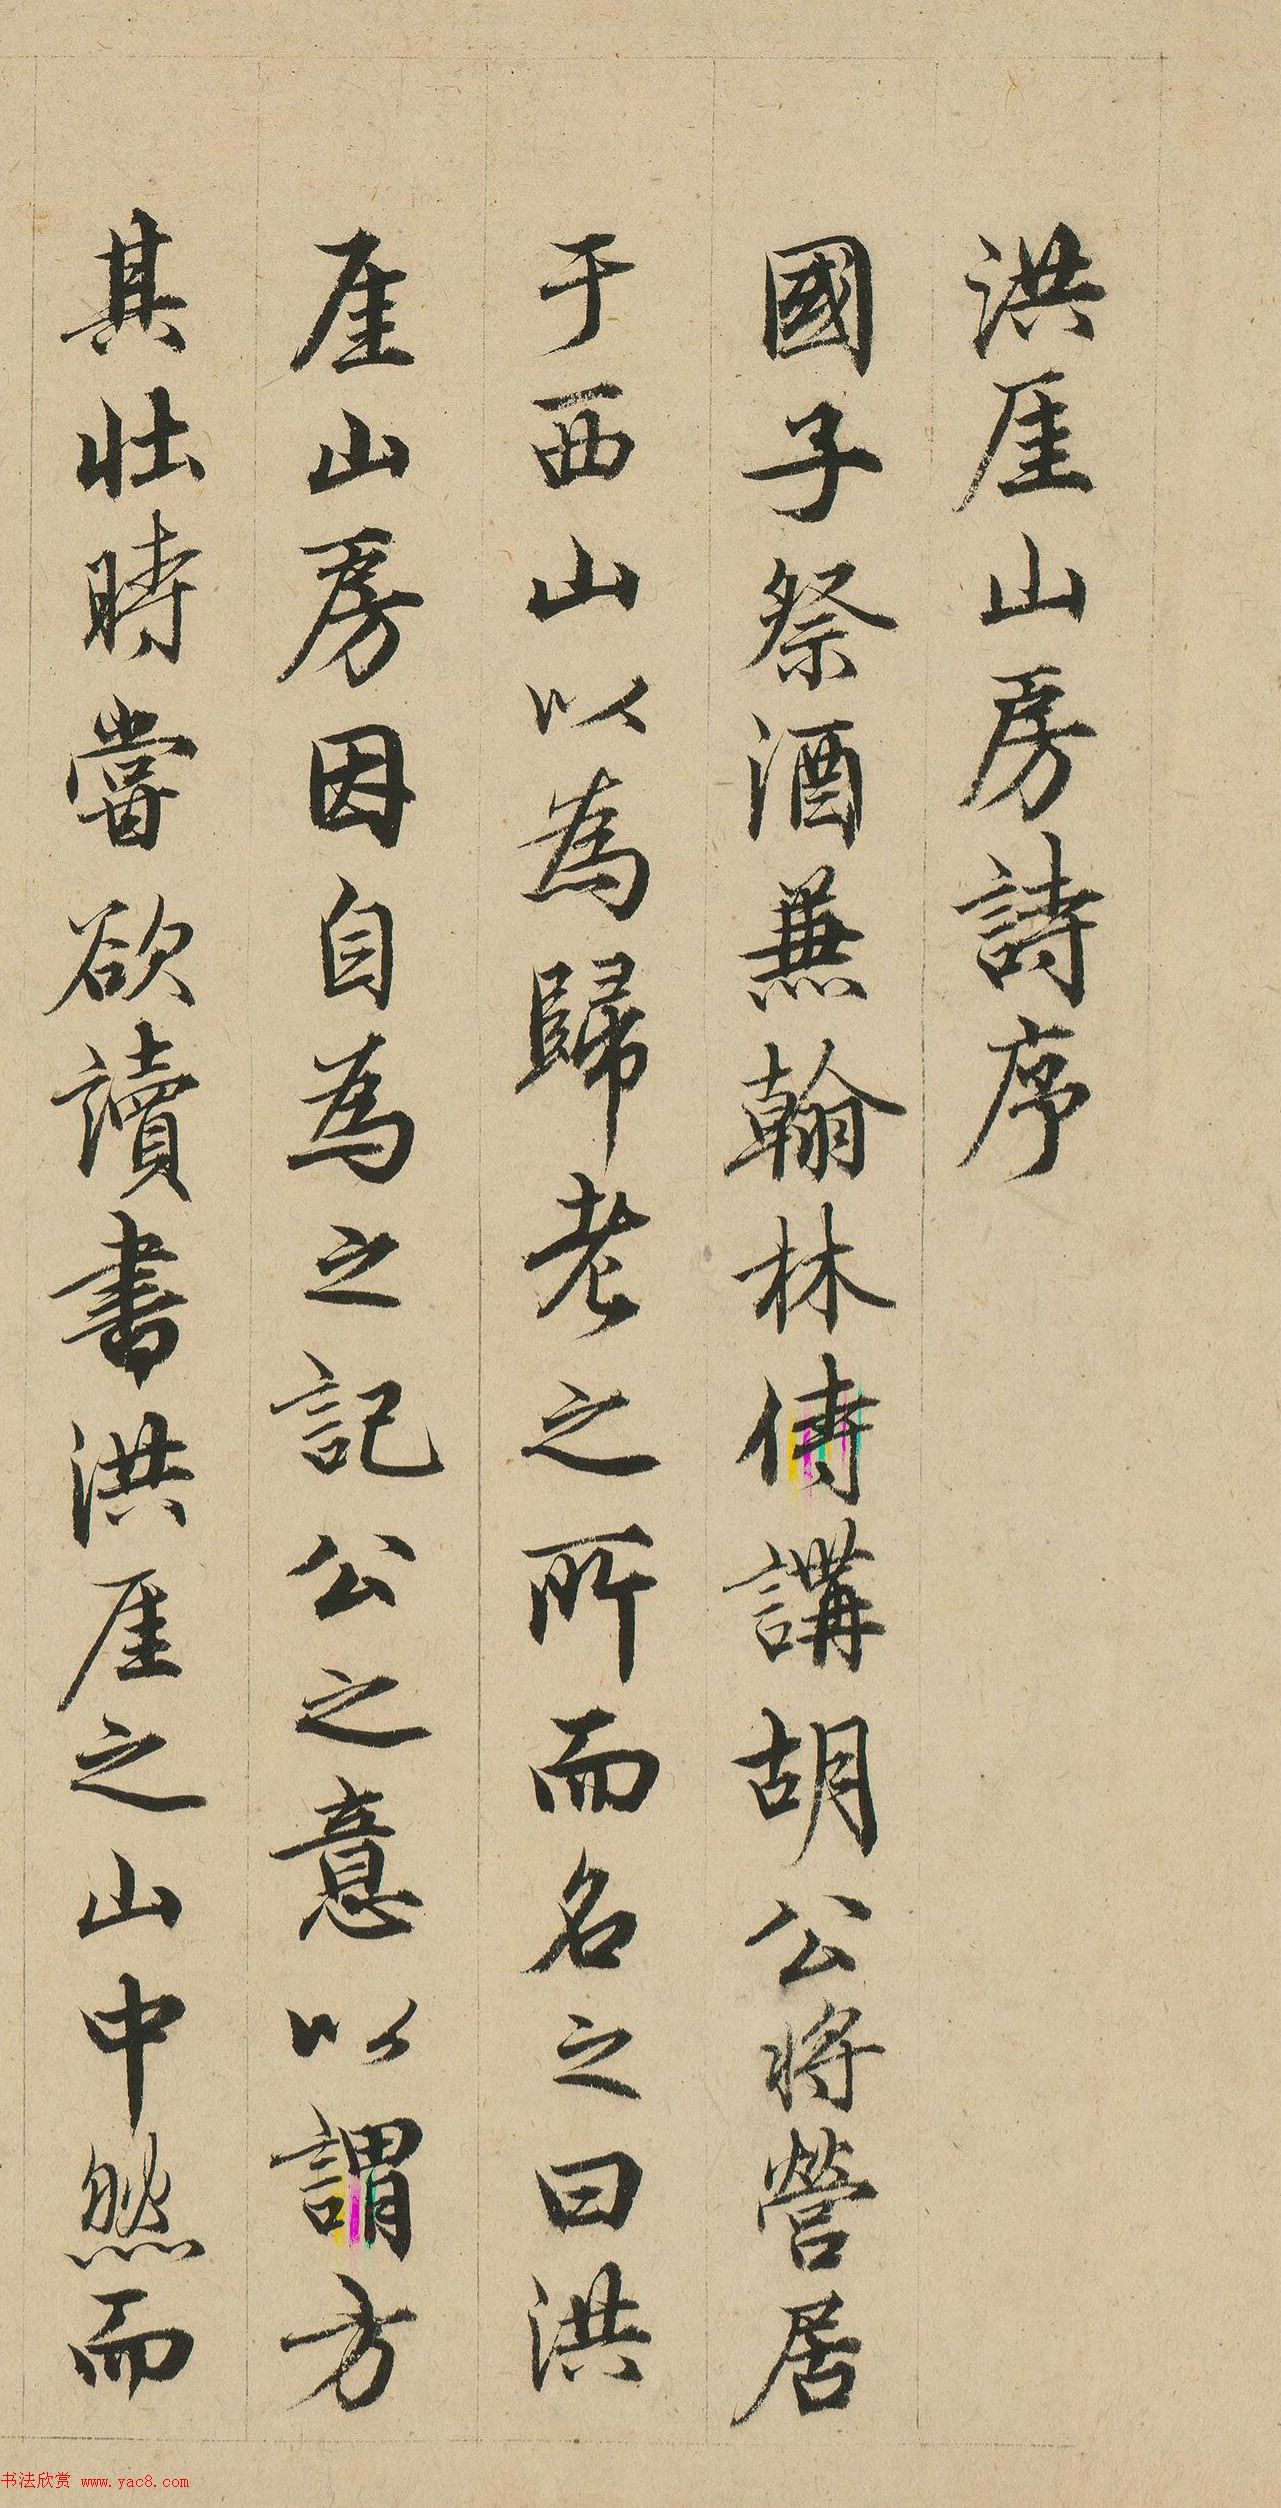 洪厓山房詩序
國子祭酒蕪翰林侍講胡公將營居
于西山以為歸老之所而名之曰洪
厓山房因自為之記公之意以謂方
其壯時嘗欲讀書洪厓之山中然而
书法欣赏 www.yac8.com